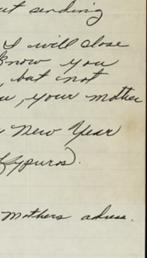 ut sending
I will close
Know you
, but not
u, your mother
New Year
Mothers adress.